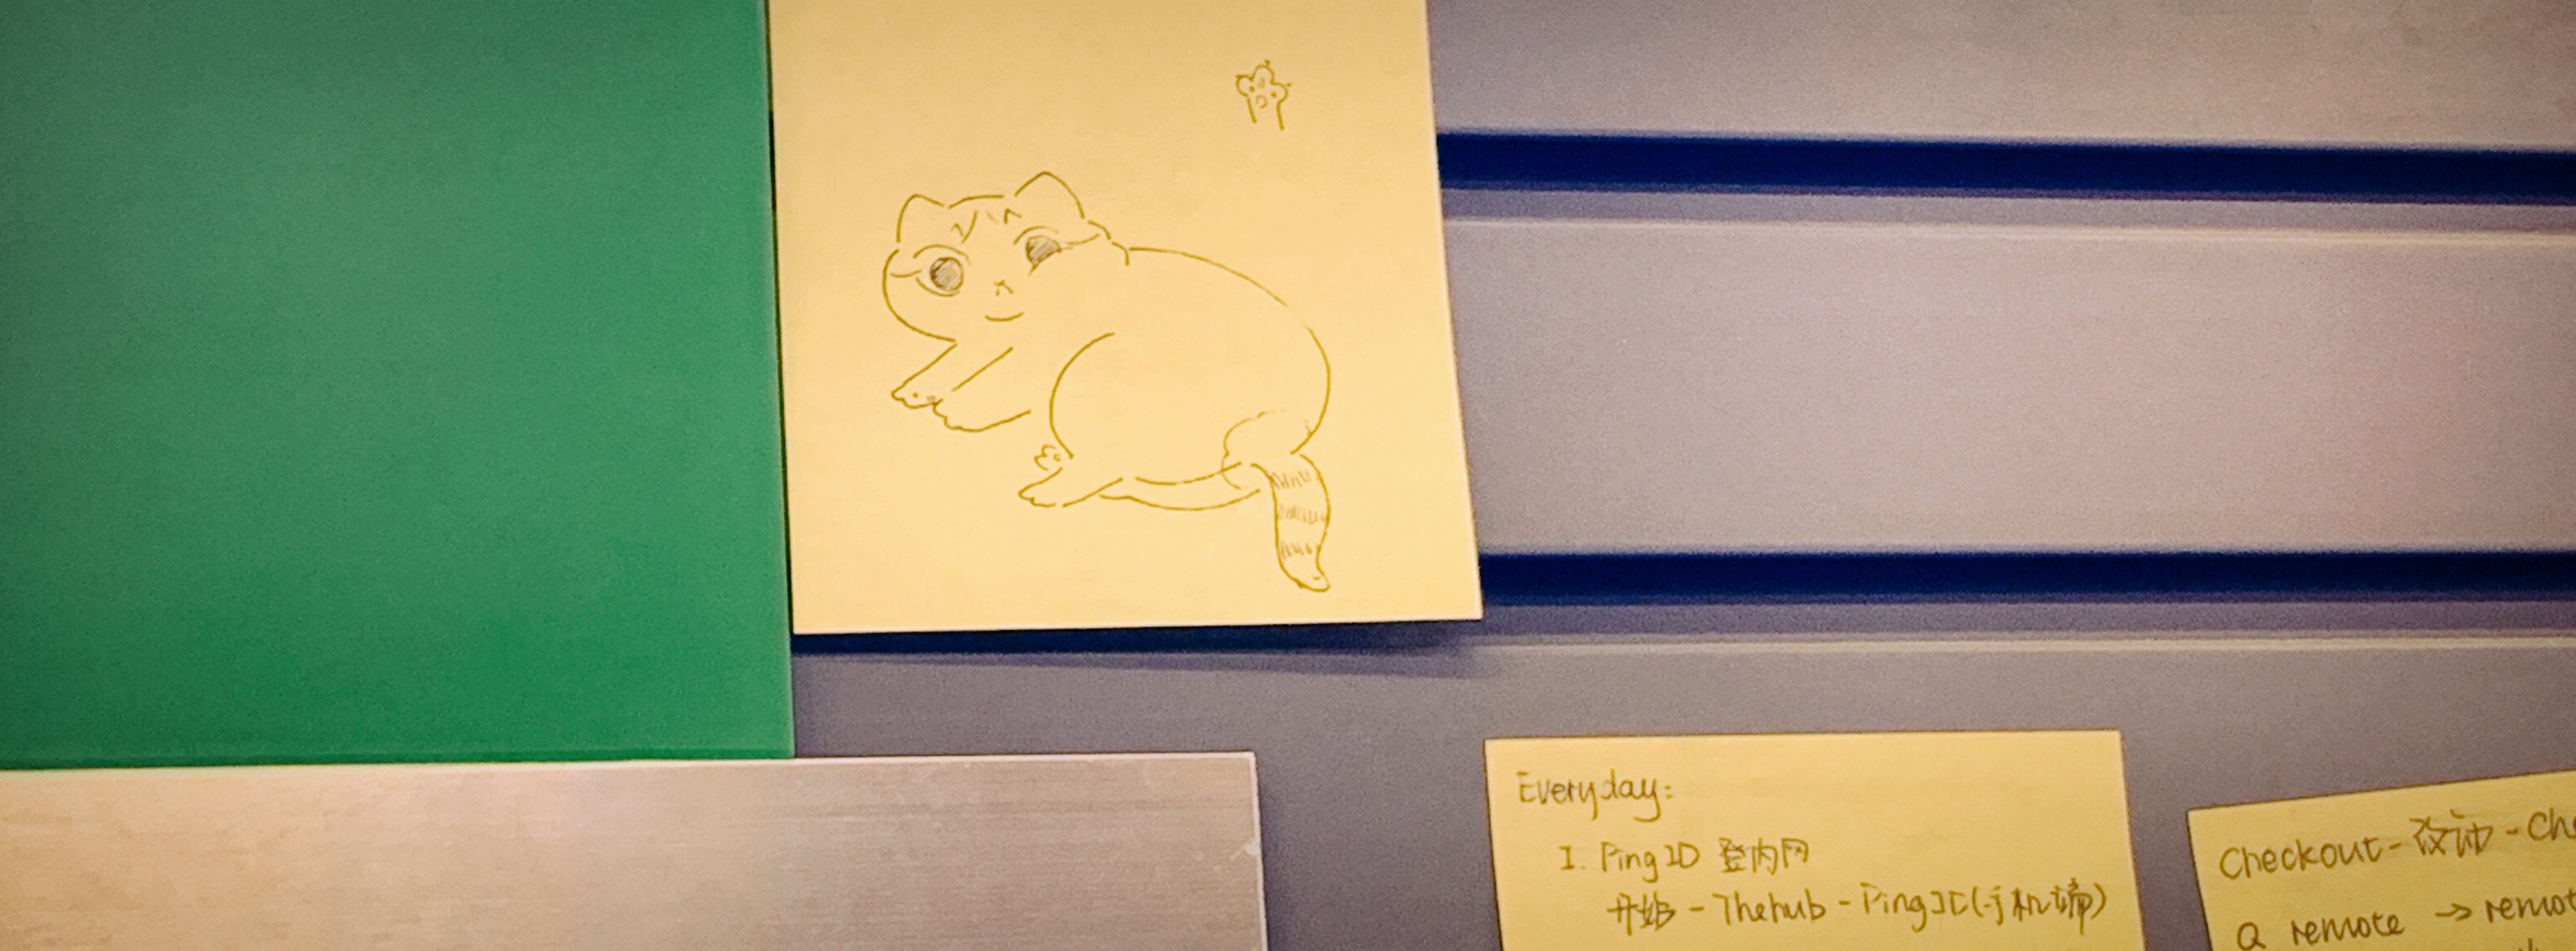 Everyday:
1. PingID 登内网
开始 - Thehub - PingID(手机端)
Checkout - 改动 - Che
Q remote → remot